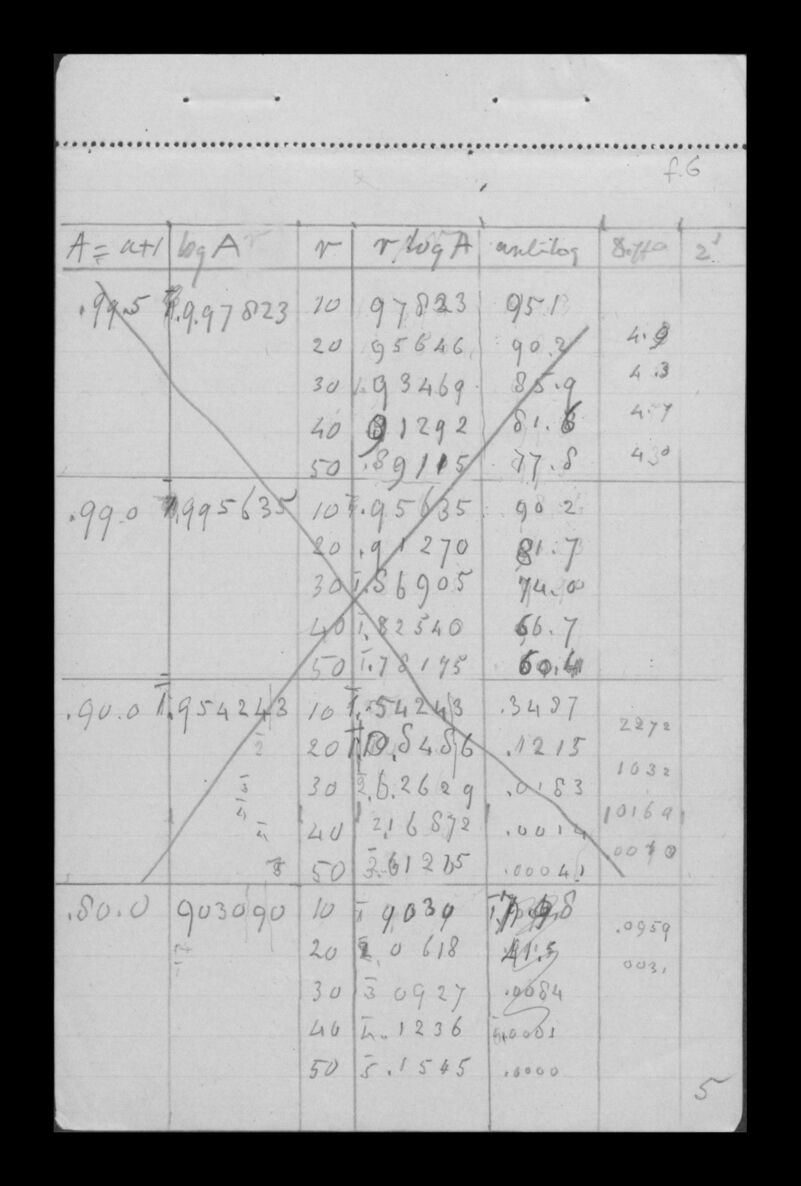 f.6
A = a+1 log A r r log A antilog Diffce
.99.5 1̄.997823 10 97823 95.1
20 95646 90.2 4.9
30 1̄.93469 85.9 4.3
40 91292 81.6 4.7
50 .89115 77.8 430
.99.0 1̄.995635 10 1̄.95635 90 2
20 .91270 81.7
30 1̄.86905 74.0
40 1̄.82540 66.7
50 1̄.78175 60.4
.90.0 1̄.954243 10 1̄.54243 .3487
2̄ 20 .1215 2272
3̄ 30 2̄.62629 .0183 1032
4̄ 40 216872 .0014 10169
50 3̄.61215 .0004
.80.0 903090 10 1̄ 9030
20 0618 41.5 .0959
30 3̄ 0927 .0084 003
40 4̄.1236 .0001
50 5̄.1545 .0000
5